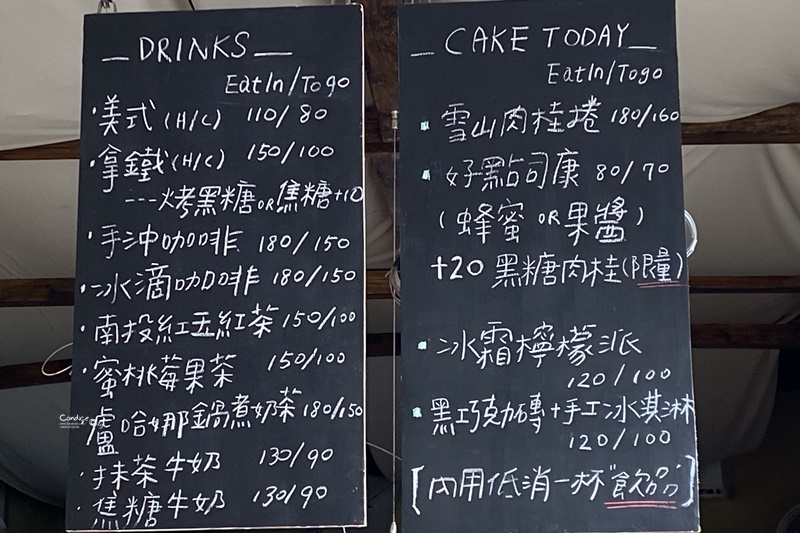 DRINKS
EatIn/Togo
·美式(H/C) 110/80
·拿鐵(H/C) 150/100
---烤黑糖OR焦糖+10
·手沖咖啡 180/150
·冰滴咖啡 180/150
·南投紅玉紅茶 150/100
·蜜桃莓果茶 150/100
·盧哈娜鍋煮奶茶 180/150
·抹茶牛奶 130/90
·焦糖牛奶 130/90
CAKE TODAY
EatIn/Togo
▪雪山肉桂捲 180/160
▪好點司康 80/70
(蜂蜜OR果醬)
+20 黑糖肉桂(限量)
▪冰霜檸檬派
120/100
▪黑巧克力磚+手工冰淇淋
120/100
[內用低消一杯"飲品"]
Candice